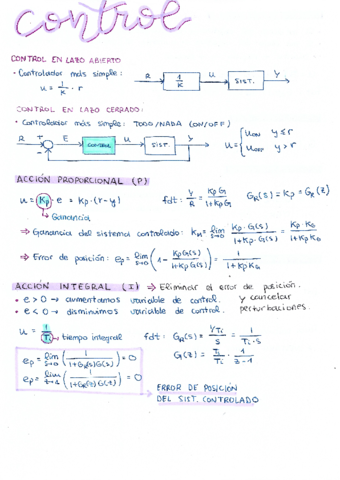 control
CONTROL EN LAZO ABIERTO
• Controlador más simple:
u = 1/K · r
R → 1/K → U → SIST. → Y
CONTROL EN LAZO CERRADO:
• Controlador más simple: TODO/NADA (ON/OFF)
R + - E CONTROL U SIST. Y
u = { uON y ≤ r
uOFF y > r
ACCIÓN PROPORCIONAL (P)
u = Kp · e = Kp · (r-y) fdt: Y/R = KpG/(1+KpG) GR(s) = Kp = GR(z)
Ganancia
⇒ Ganancia del sistema controlado: KM = lim s→0 Kp·G(s)/(1+Kp·G(s)) = Kp·K0/(1+Kp·K0)
⇒ Error de posición: ep = lim s→0 (1 - KpG(s)/(1+KpG(s))) = 1/(1+KpK0)
ACCIÓN INTEGRAL (I) ⇒ Eliminar el error de posición.
• e > 0 → aumentamos variable de control. y cancelar
• e < 0 → disminuimos variable de control. perturbaciones.
u = 1/Ti → tiempo integral fdt: GR(s) = 1/Ti / s = 1/(Ti·s)
G(z) = T/Ti · 1/(z-1)
ep = lim s→0 (1/(1+GR(s)G(s))) = 0
ep = lim z→1 (1/(1+GR(z)G(z))) = 0
ERROR DE POSICIÓN
DEL SIST. CONTROLADO